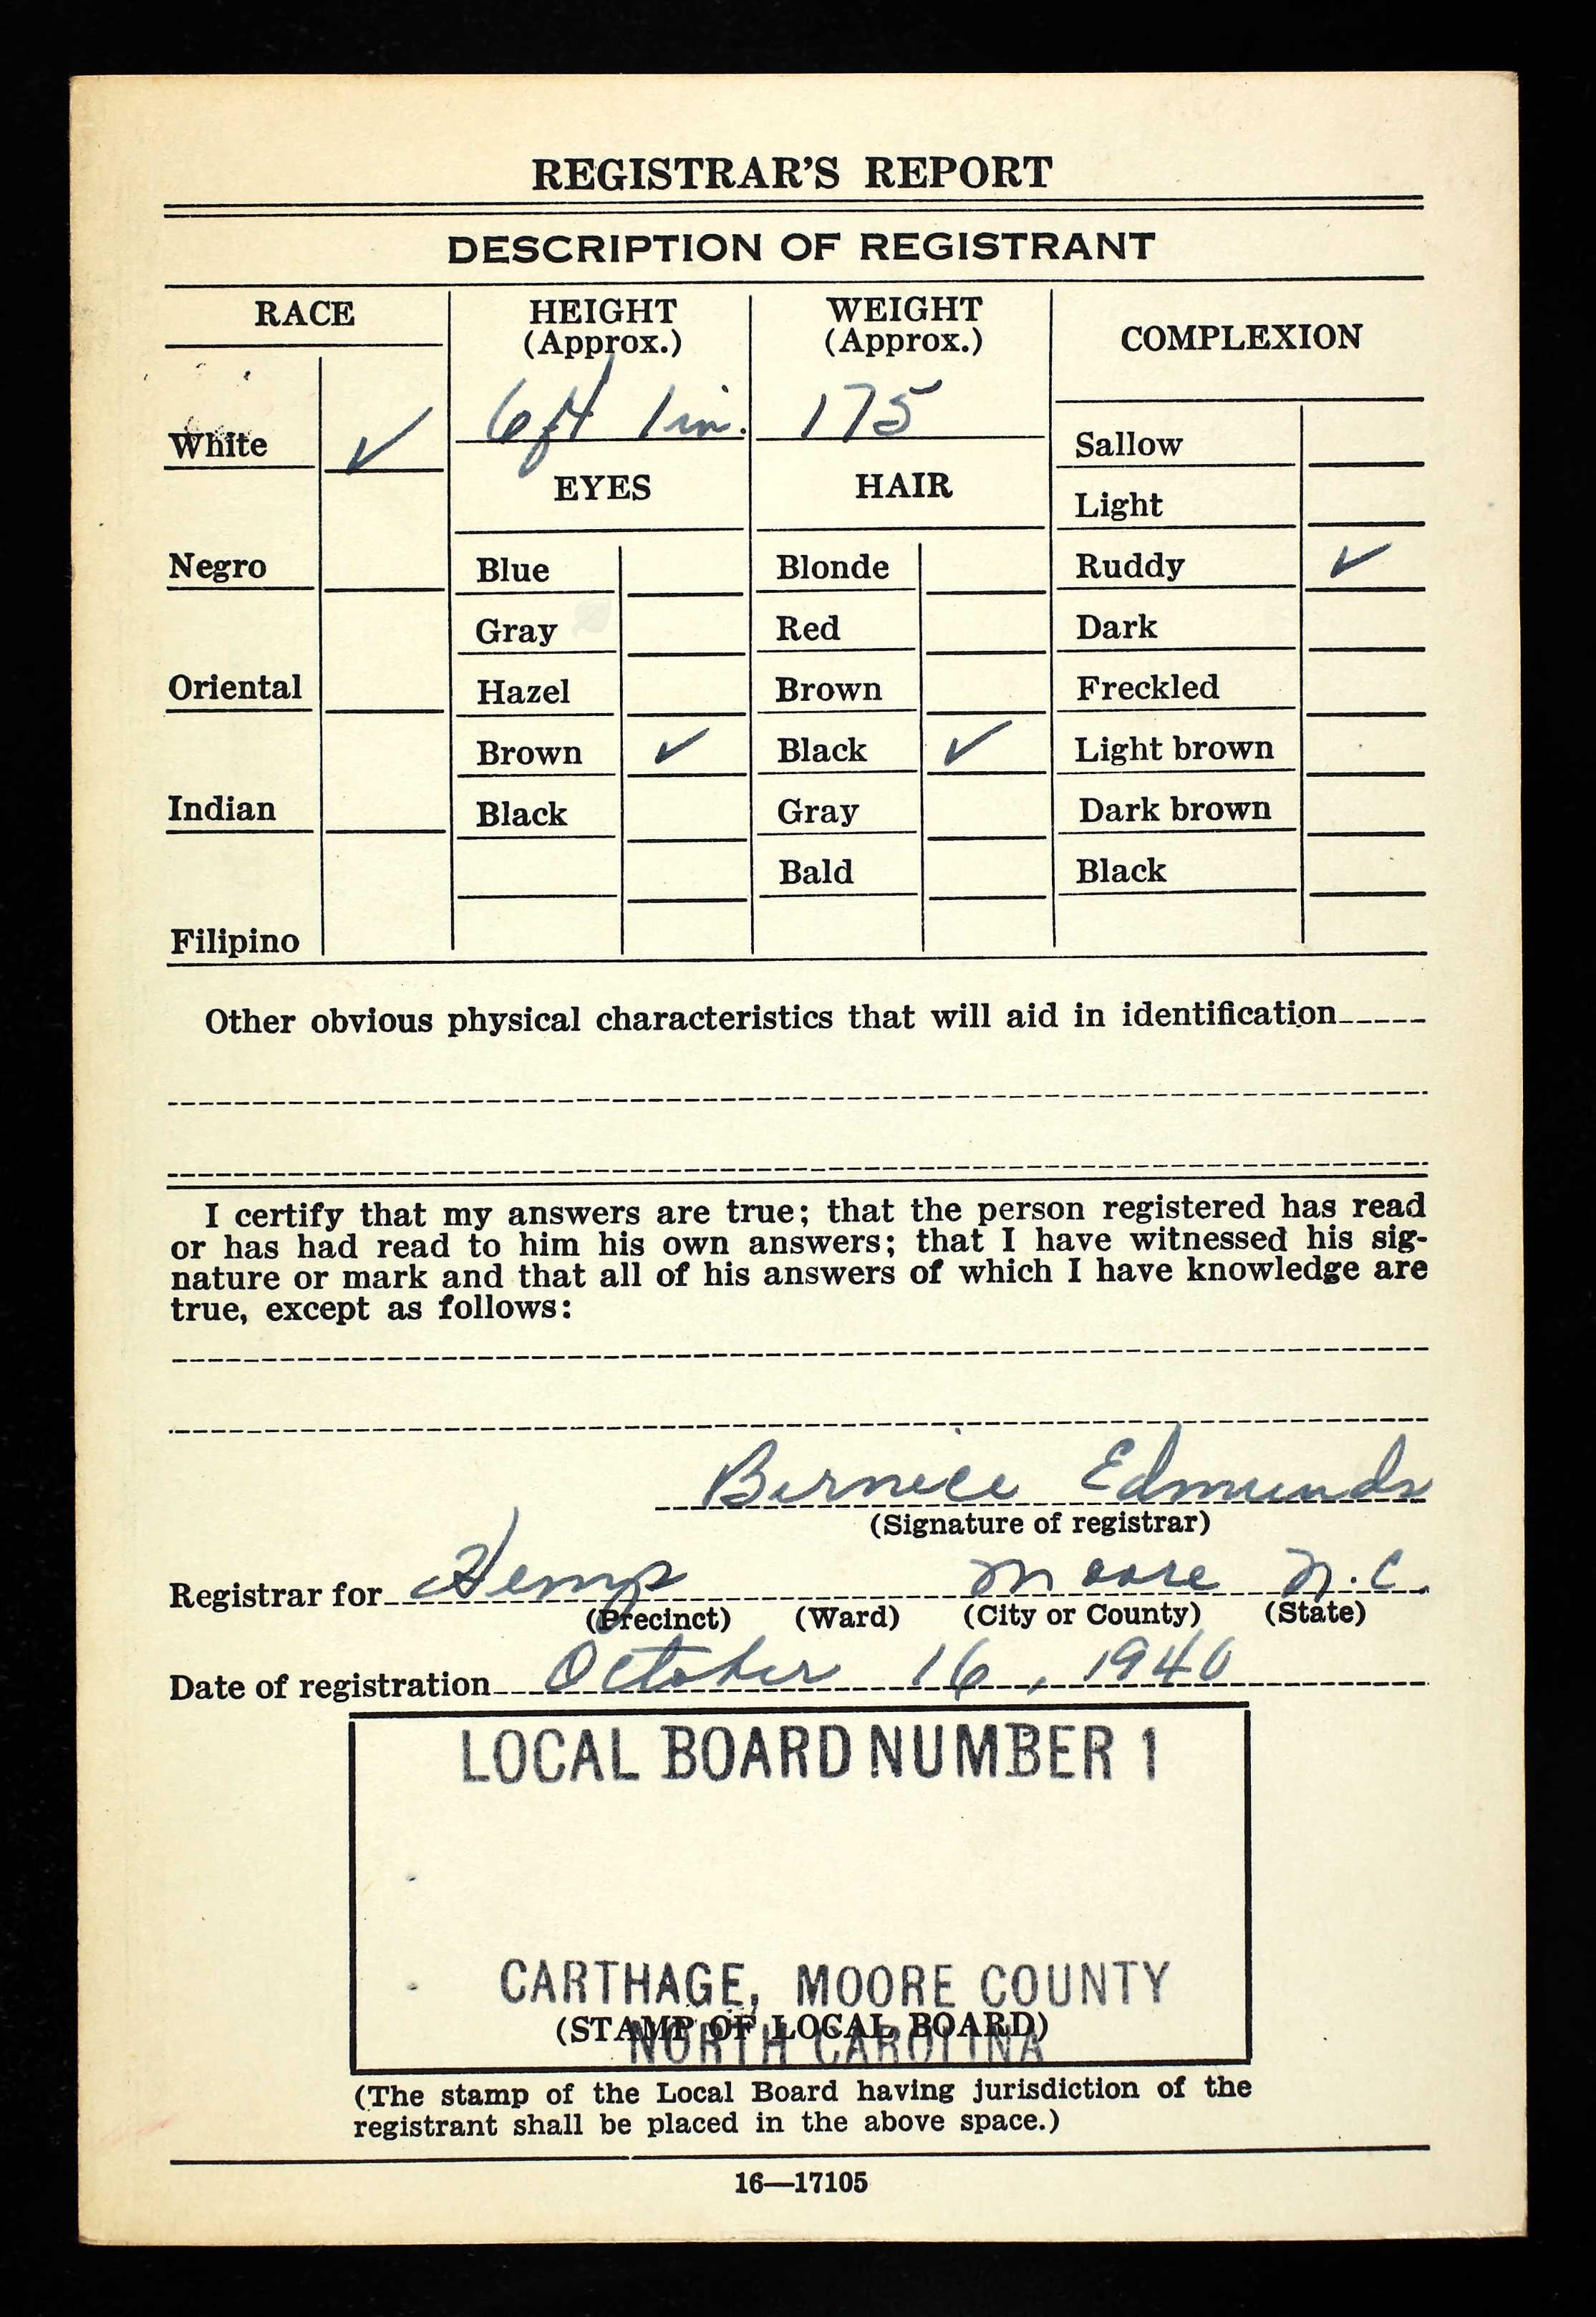 REGISTRAR'S REPORT
DESCRIPTION OF REGISTRANT
RACE HEIGHT (Approx.) WEIGHT (Approx.) COMPLEXION
White ✓ 6 ft 1 in. 175 Sallow
EYES HAIR
Light
Negro Blue Blonde Ruddy ✓
Gray Red Dark
Oriental Hazel Brown Freckled
Brown ✓ Black ✓ Light brown
Indian Black Gray Dark brown
Bald Black
Filipino
Other obvious physical characteristics that will aid in identification
I certify that my answers are true; that the person registered has read
or has had read to him his own answers; that I have witnessed his sig-
nature or mark and that all of his answers of which I have knowledge are
true, except as follows:
Bernice Edmunds
(Signature of registrar)
Registrar for Hemp Moore N.C.
(Precinct) (Ward) (City or County) (State)
Date of registration October 16, 1940
LOCAL BOARD NUMBER 1
CARTHAGE, MOORE COUNTY
(STAMP OF LOCAL BOARD)
NORTH CAROLINA
(The stamp of the Local Board having jurisdiction of the
registrant shall be placed in the above space.)
16—17105